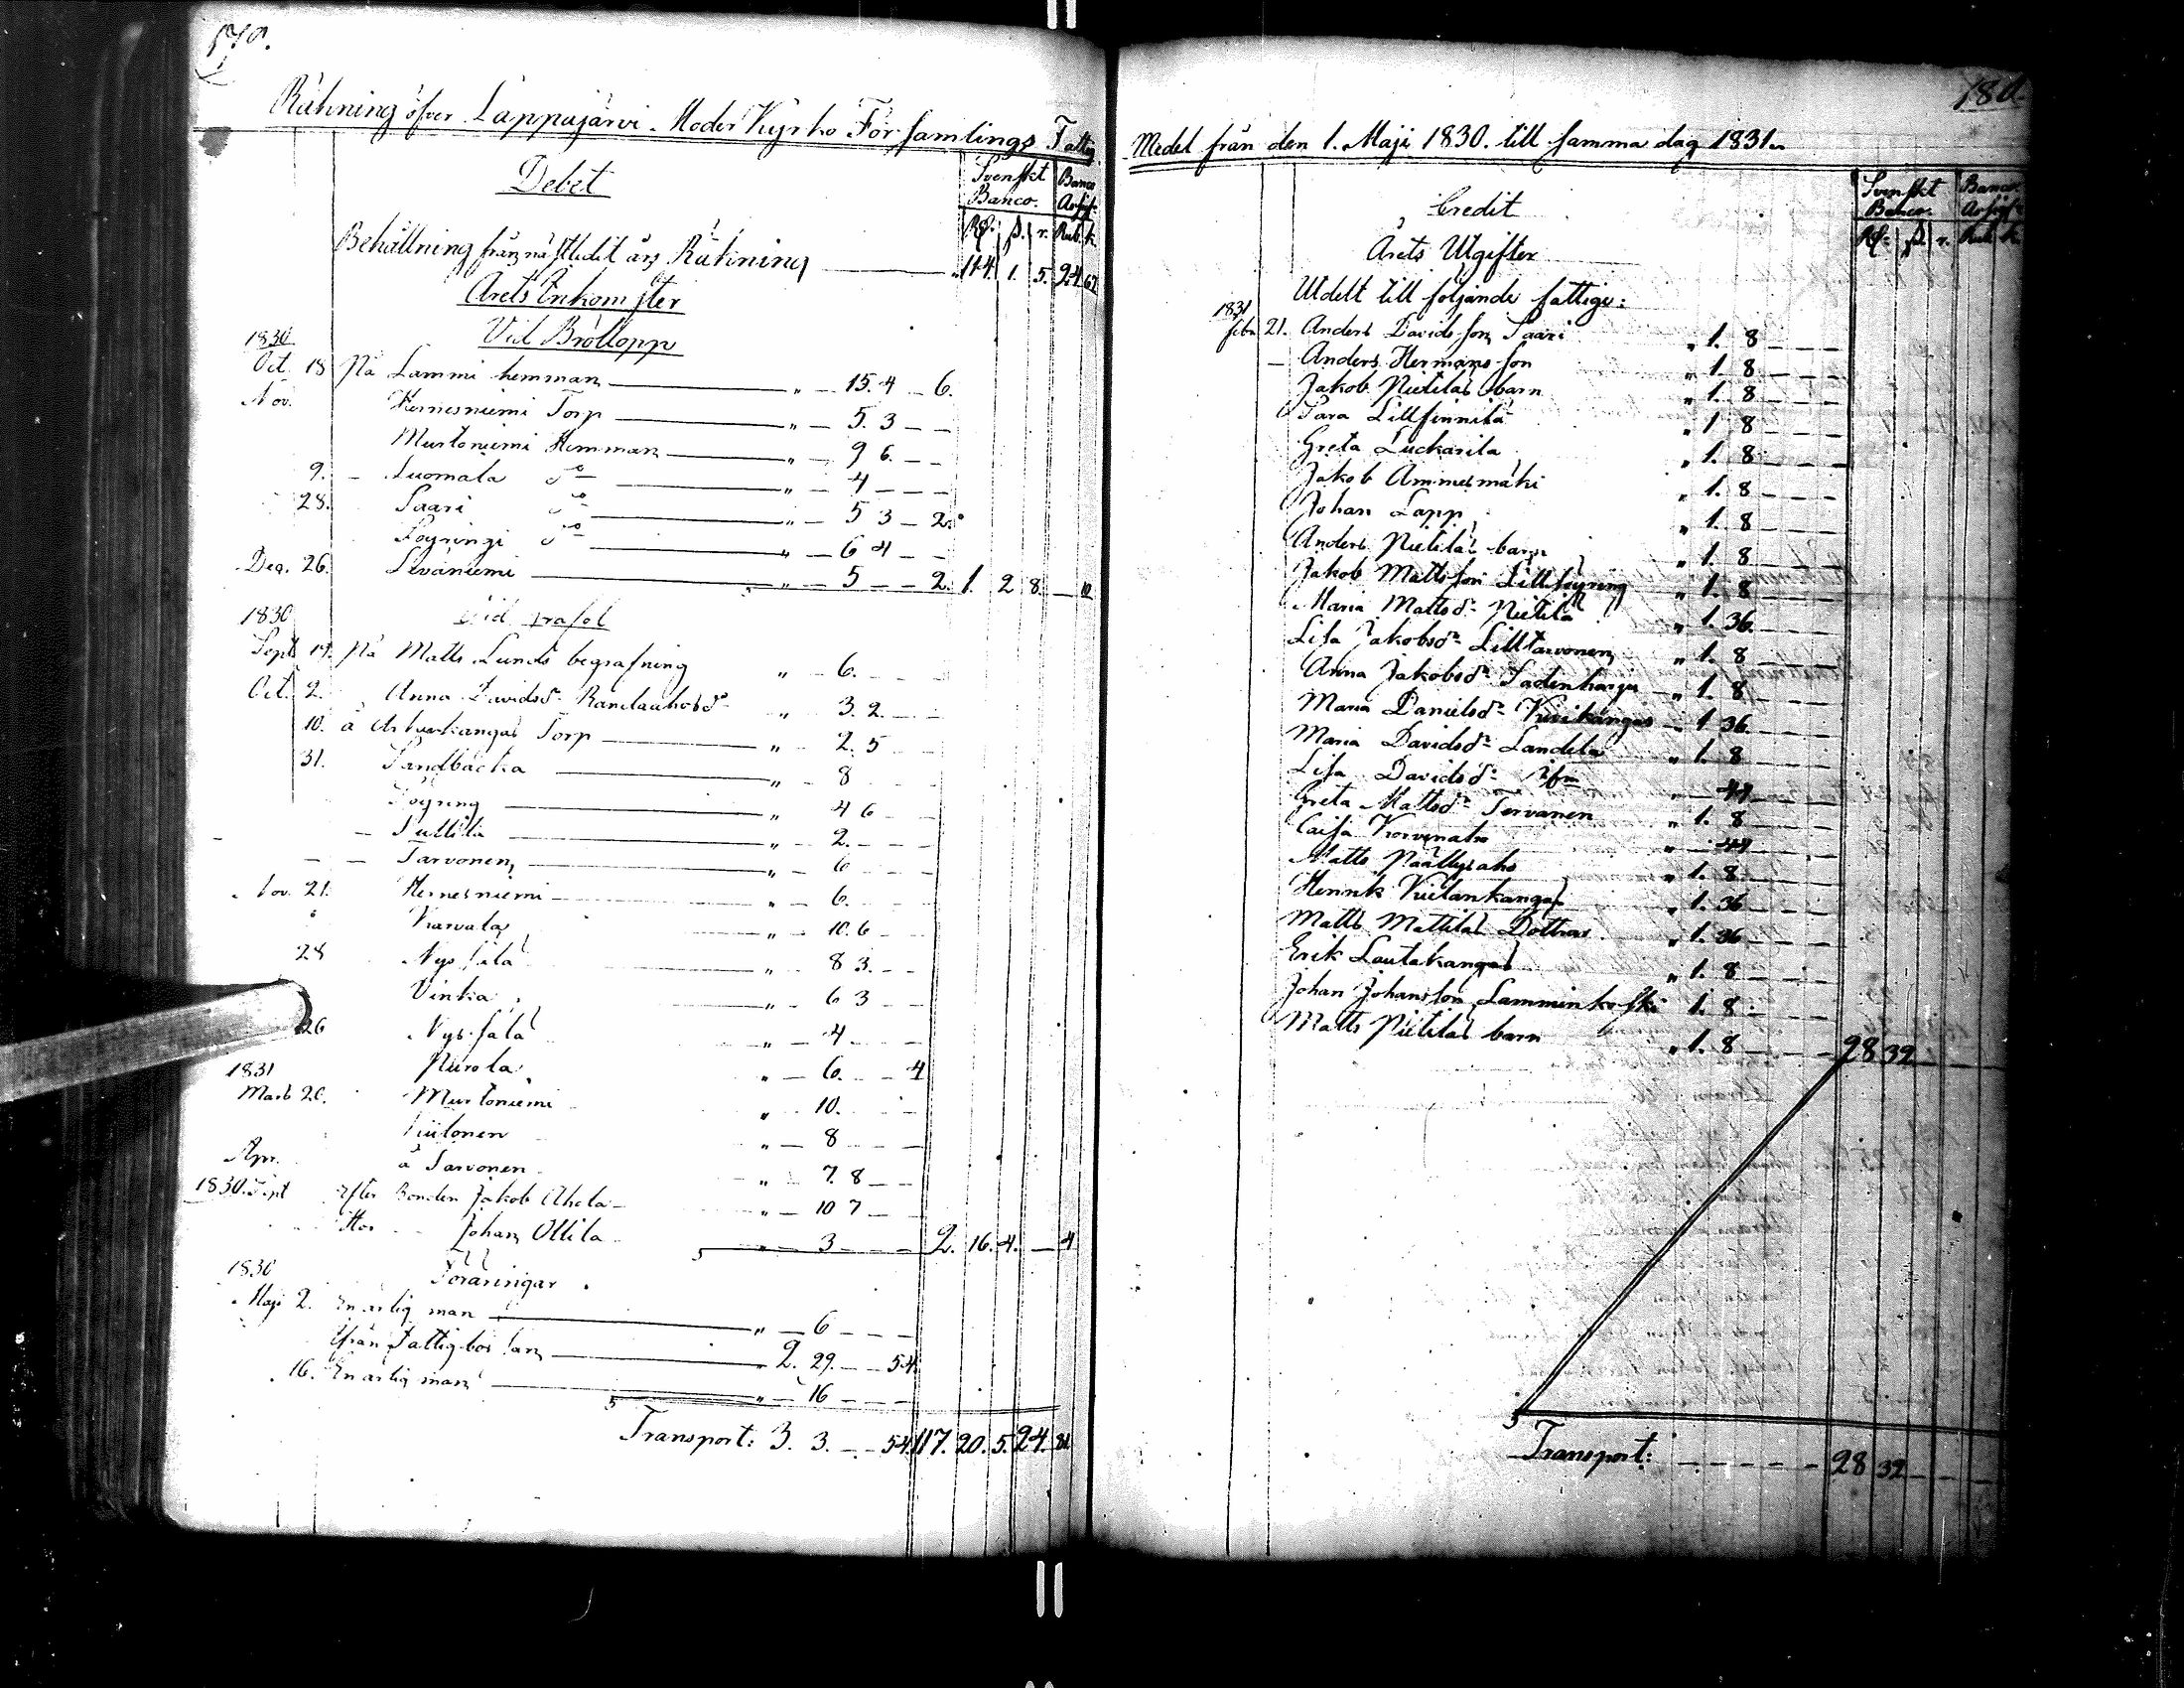 179.
Räkning öfver Lappajärvi Moder Kyrko Församlings Fattig
Debet
Svenskt Banco. Banco Assign:
Rd. ß. r. Rub. k.
Behållning från nästledit års Räkning 114. 1. 5. 24. 67
Årets Inkomster
Vid Bröllopp
1830
Oct. 18 På Lammi hemman " 15. 4 6.
Nov. Hernesniemi Torp " 5. 3
Murtoniemi Hemman " 9 6.
9. Luomala do " 4
28. Saari do " 5 3 2.
Löyringi do " 6 4
Dec. 26. Siväniemi " 5 2. 1. 2 8. 10
1830
Sept 19. På Matts Lunds begrafning " 6.
Oct. 2. Anna Davidsdr " 3. 2.
10. å Torp " 2. 5
31. Sandbacka " 8
Löyring " 4 6
" 2.
Tarvonen " 6
Nov. 21. Hernesniemi " 6.
Karvala " 10. 6
28 " 8 3.
Vinka " 6 3
26 " 4
1831 " 6. 4
Mars 20. Murtoniemi " 10.
" 8
Apr. å Tarvonen " 7. 8
1830. Sept Efter Bonden Jakob Ahola " 10 7
Johan Ollila " 3 2. 16. 4. 4
1830 Föräringar
Maji 2. En ärlig man " 6
från Fattigbössan 2. 29. 54.
16. En ärlig man " 16
Transport: 3. 3. 54. 117. 20. 5. 24. 81
180.
Medel från den 1. Maji 1830. till samma dag 1831.
Credit
Svenskt Banco. Banco. Assign:
Rd. ß. r. Rub. k.
Årets Utgifter
Utdelt till följande fattige:
1831
Febr. 21. Anders Davidsson Saari " 1. 8
Anders Hermansson " 1 8
Jakob Pietiläs barn " 1 8
Sara Lillfinnilä " 1 8
Greta Luckarila " 1. 8
Jakob Ammesmäki " 1. 8
Johan Lapp " 1. 8
Anders Pietiläs barn " 1. 8
Jakob Mattsson Lillöyring " 1. 8
Maria Mattsdr Pietilä " 1. 36.
Lisa Jakobsdr Lilltarvonen " 1. 8
Anna Jakobsdr " 1. 8
Maria Danielsdr Kivikangas 1 36
Maria Davidsdr Landela " 1. 8
Lisa Davidsdr " 44
Greta Mattsdr Tervanen " 1. 8
Caisa Korvenaho " 44
Matts Päällysaho " 1. 8
Henrik Kuilankangas " 1. 36
Matts Mattilas Dottrar " 1. 36
Erik Lautakangas " 1. 8
Johan Johansson Lamminkoski 1. 8
Matts Pietiläs barn " 1. 8 28 32
Transport: 28 32